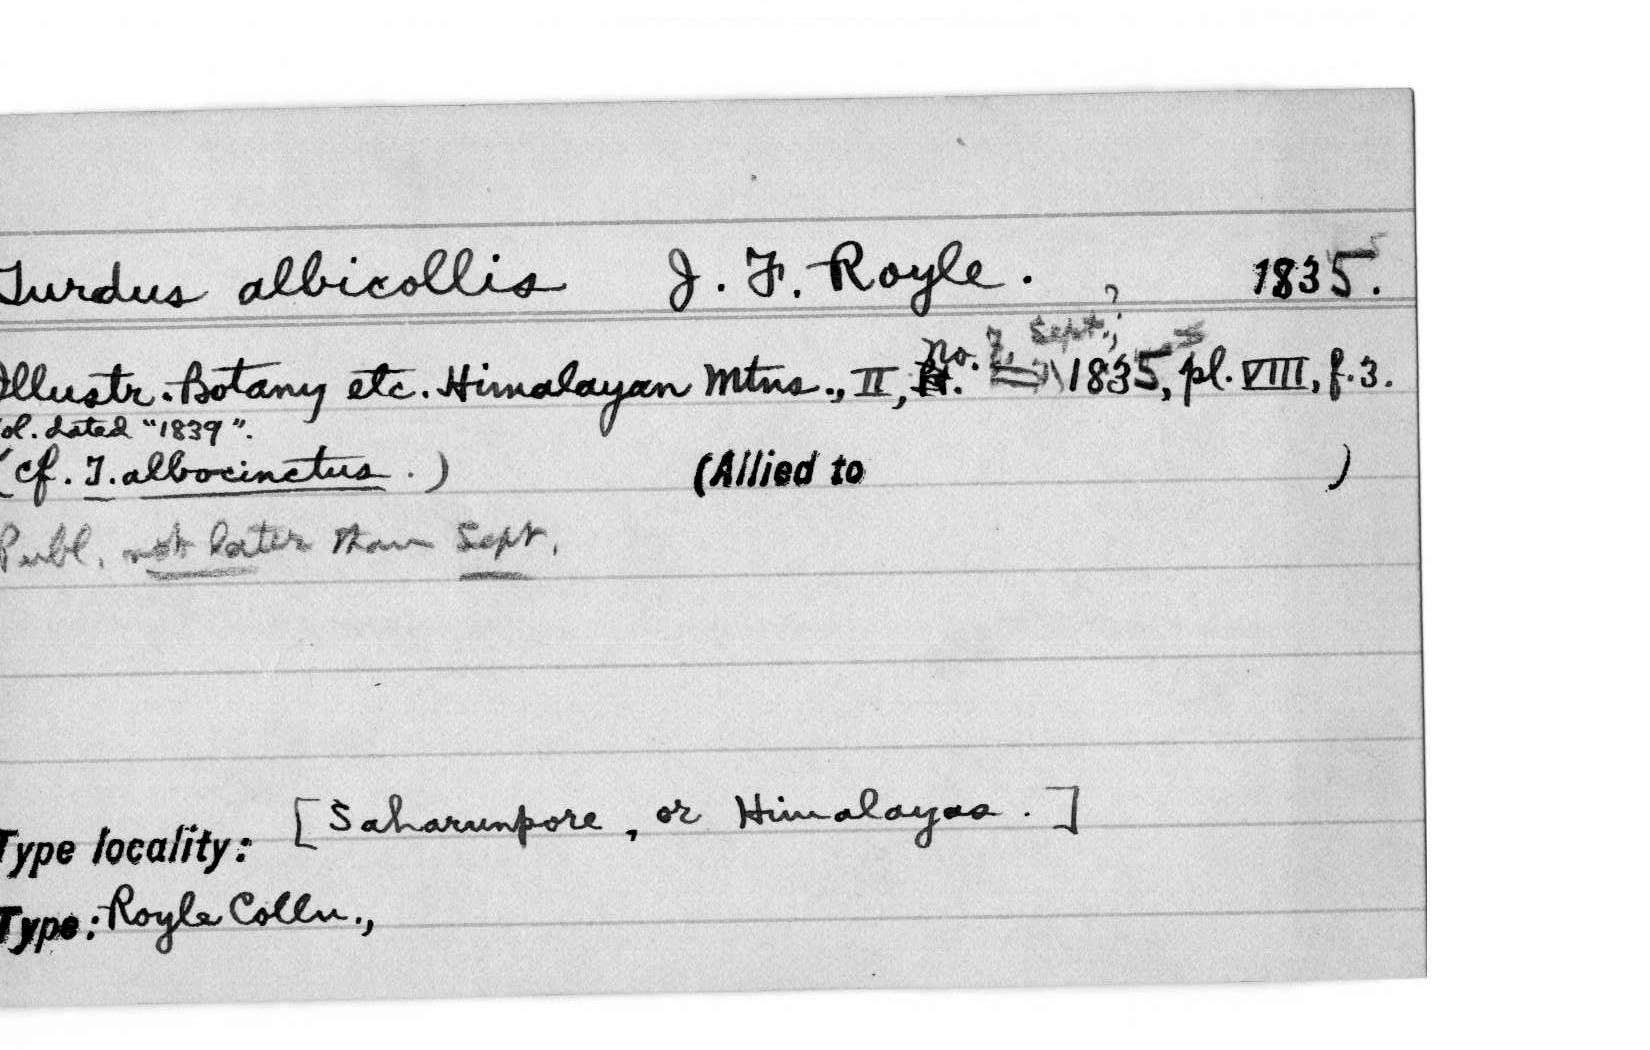 Turdus albicollis J. F. Royle. 1835.
? 
No. 7, Sept.,
Illustr. Botany etc. Himalayan Mtns., II, 1835, pl. VIII, f.3.
ol. dated "1839".
(cf. T. albocinctus.) (Allied to )
Publ. not later than Sept.
[Saharunpore, or Himalayas.]
Type locality:
Type: Royle Colln.,